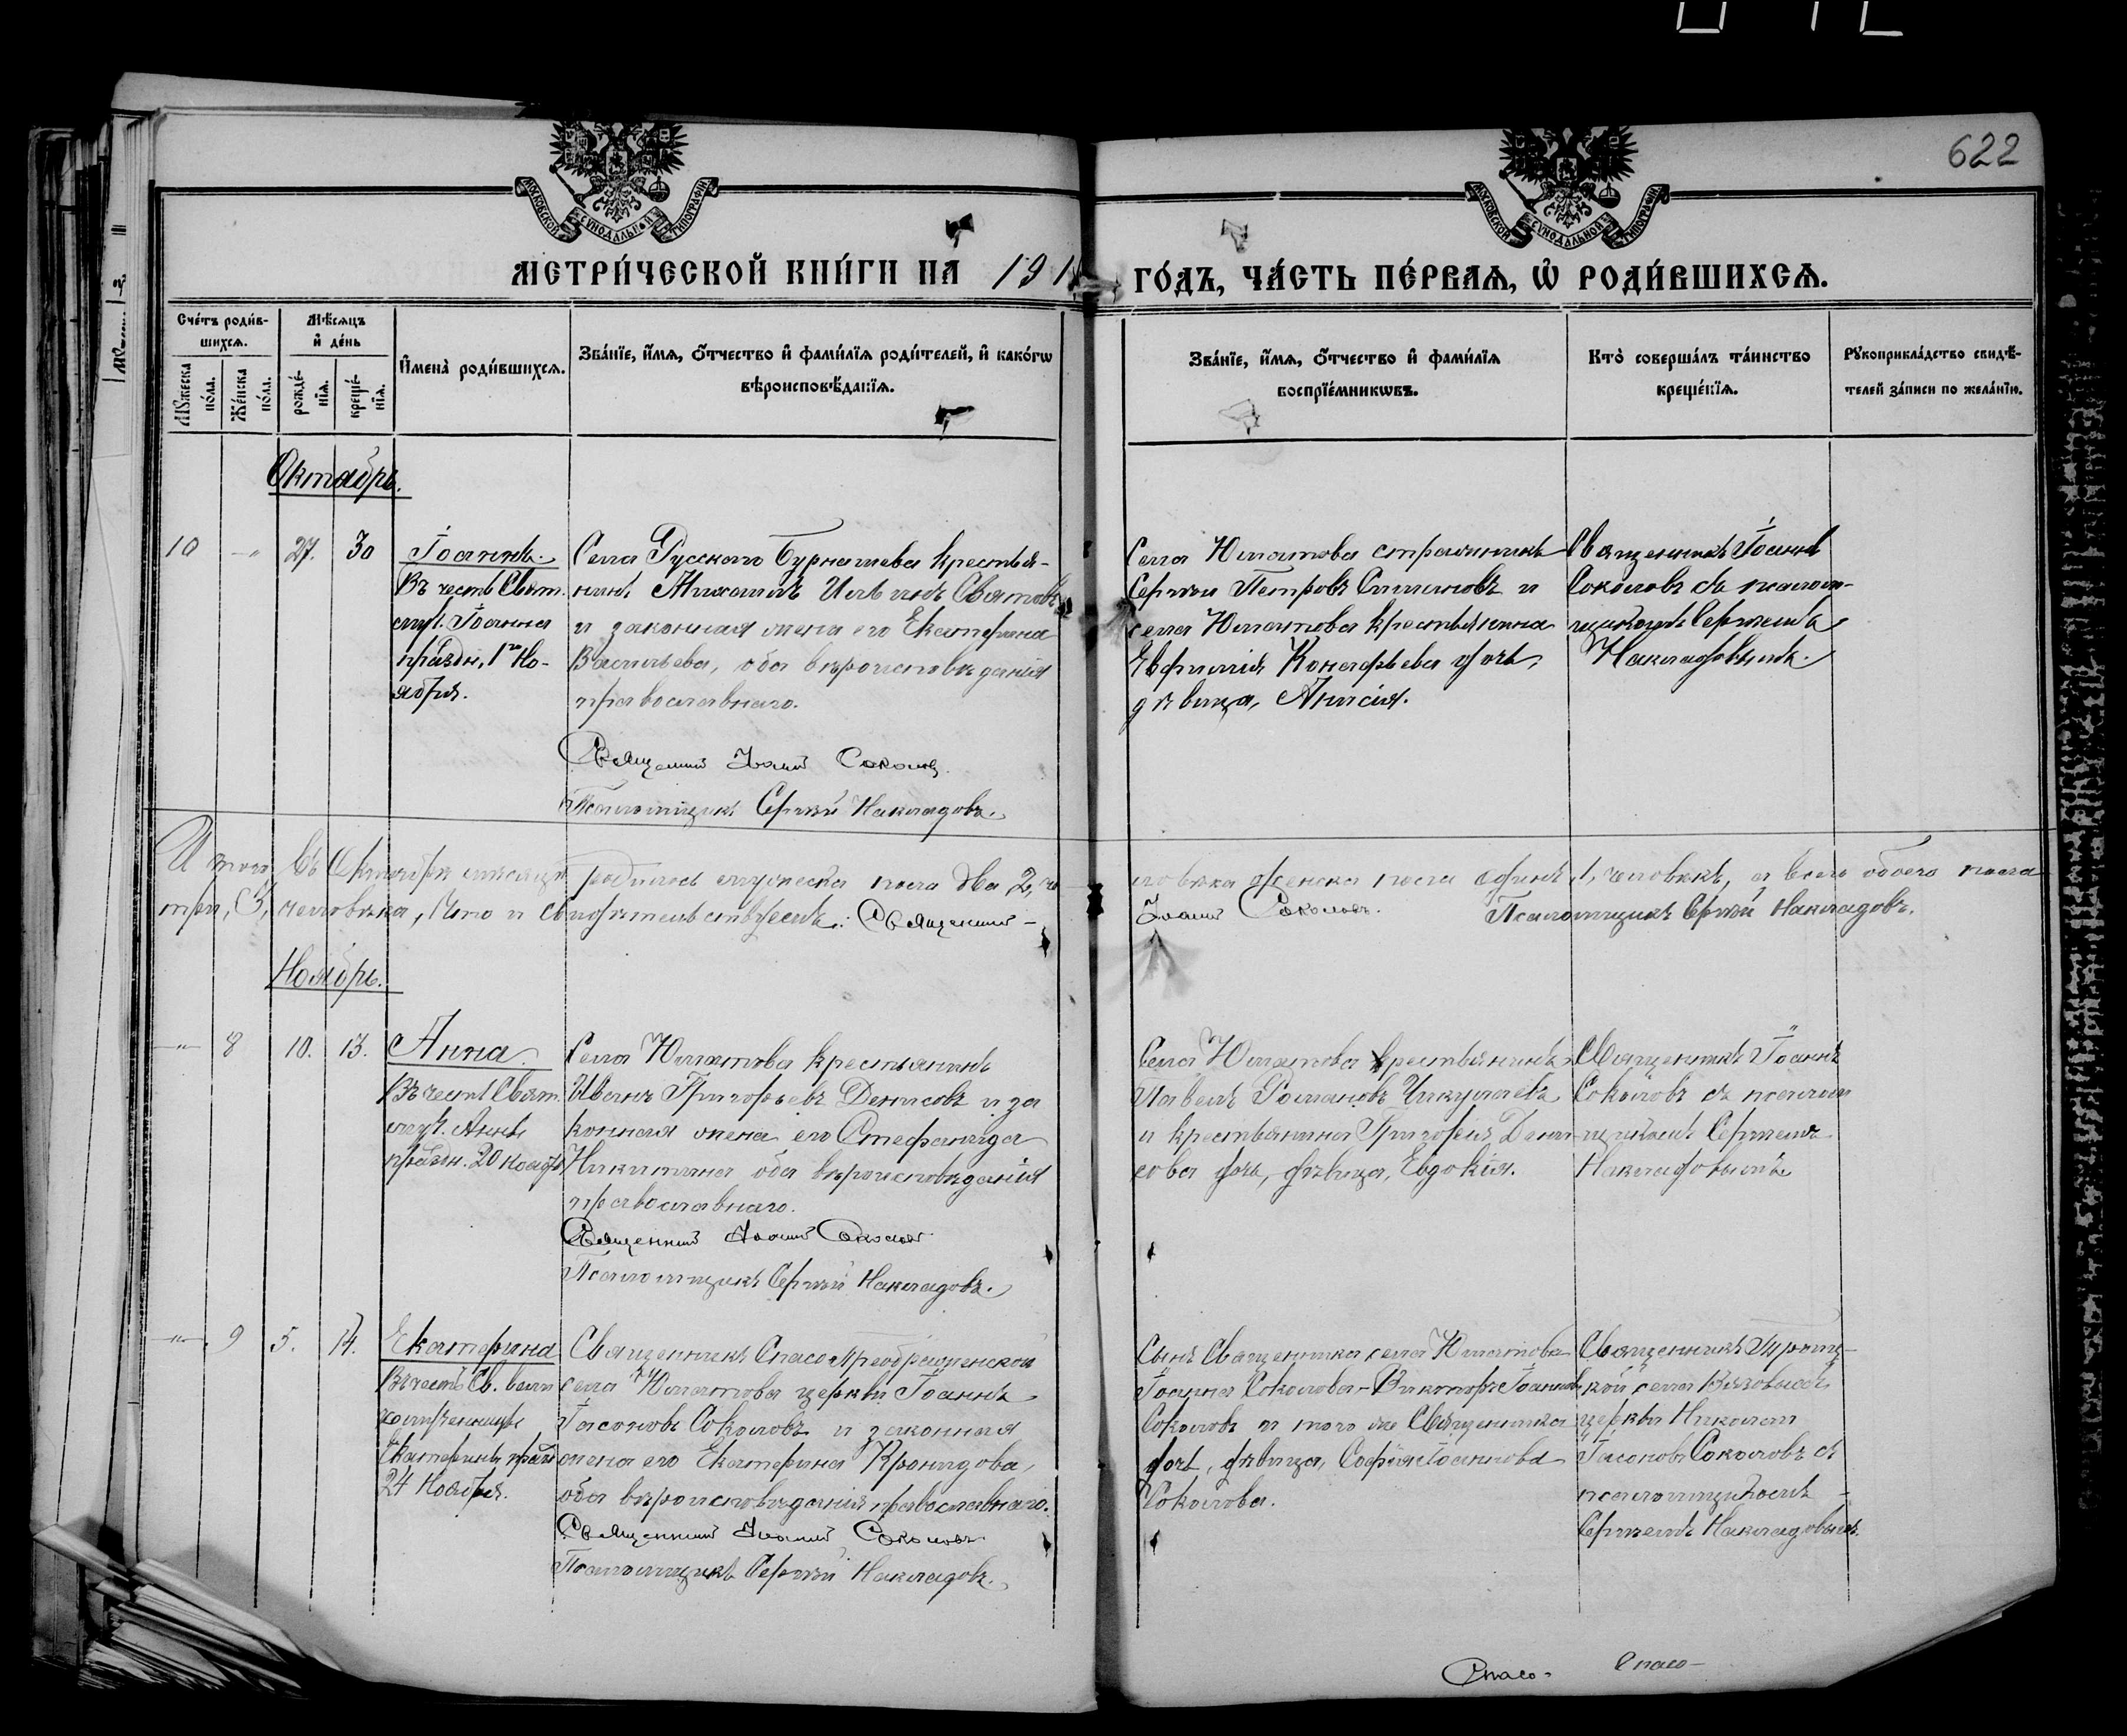 622
МОСКОВСКОЙ СѴНОДАЛЬНОЙ ТИПОГРАФІИ
МОСКОВСКОЙ СѴНОДАЛЬНОЙ ТИПОГРАФІИ
МЕТРИ́ЧЕСКОЙ КНИ́ГИ НА 191
ГО́ДЪ, ЧА́СТЬ ПЕ́РВАѦ, Ѡ҆ РОДИ́ВШИХСѦ.
Сче́тъ роди́в-
шихсѧ.
Мѣ́сѧцъ
и҆ де́нь
Мꙋ́жеска по́ла.
Же́нска по́ла.
рожде́-нїѧ.
креще́-нїѧ.
И҆мена̀ роди́вшихсѧ.
Зва́нїе, и҆́мѧ, ѻ҆́тчество и҆ фами́лїѧ роди́телей, и҆ како́гѡ
вѣроисповѣ́данїѧ.
Зва́нїе, и҆́мѧ, ѻ҆́тчество и҆ фами́лїѧ
воспрїе́мникѡвъ.
Кто̀ соверша́лъ та́инство
креще́нїѧ.
Рꙋкоприкла́дство свидѣ́-
телей за́писи по жела́нїю.
Октябрь.
10 -„ 27. 30
Іоаннъ.
Въ честь Свят.
муч. Іоанна
праздн. 1го Но-
ября.
Села Русскаго Бурнашева крестья-
нинъ Михаилъ Ильинъ Святовъ
и законная жена его Екатерина
Васильева, оба вѣроисповѣданія
православнаго.
Священник Иоанн Соколов.
Псаломщикъ Сергѣй Накладовъ.
Села Юматова стражникъ
Сергѣй Петровъ Симановъ и
села Юматова крестьянина
Евфимія дочь,
дѣвица, Анисія.
Священникъ Іоаннъ
Соколовъ съ псалом-
щикомъ Сергѣемъ
Накладовымъ.
Итого въ Октябрѣ мѣсяцѣ родилось мужеска пола два 2, че-
ловѣка женска пола одинъ, 1, человѣкъ, а всего обоего пола
три, (3), человѣка, что и свидѣтельствуемъ: Священник
Иоанн Соколовъ. Псаломщикъ Сергѣй Накладовъ.
Ноябрь.
-„- 8 10. 13.
Анна.
Въ честь Свят.
муч. Анны
праздн. 20 ноября
Села Юматова крестьянинъ
Иванъ Григорьевъ Денисовъ и за
конная жена его Стефанида
Никитина оба вѣроисповѣданія
православнаго.
Священник Иоанн Соколов.
Псаломщикъ Сергѣй Накладовъ.
Села Юматова крестьянинъ
Павелъ Романовъ Чикулаевъ
и крестьянина Григорія Дени-
сова дочь, дѣвица, Евдокія.
Священникъ Іоаннъ
Соколовъ съ псалом
щикомъ Сергѣемъ
Накладовымъ
-„- 9 5. 14.
Екатерина
Въ честь Св. вели
комученицы
Екатерины праз
24 Ноября.
Священникъ Спасо Преображенской
села Юматова церкви Іоаннъ
Іасоновъ Соколовъ и законная
жена его Екатерина Кронидова,
оба вѣроисповѣданія православнаго.
Священник Иоанн Соколовъ
Псаломщикъ Сергѣй Накладовъ.
Сынъ Священника села Юматова
Іоанна Соколова - Викторъ Іоаннов
Соколовъ и того же Священника
дочь, дѣвица, Софія Іоаннова
Соколова.
Священникъ Троиц-
кой села Вязовыхъ
церкви Николай
Іасоновъ Соколовъ съ
псаломщикомъ -
Сергѣемъ Накладовымъ.
Спасо-
Спасо-